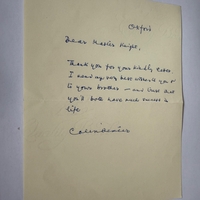 Oxford
Dear Master Knight,
Thank you for your kindly letter.
I send my very best wishes to you &
to your brother — and trust that
you'd both have such success in
life
Colin Dexter